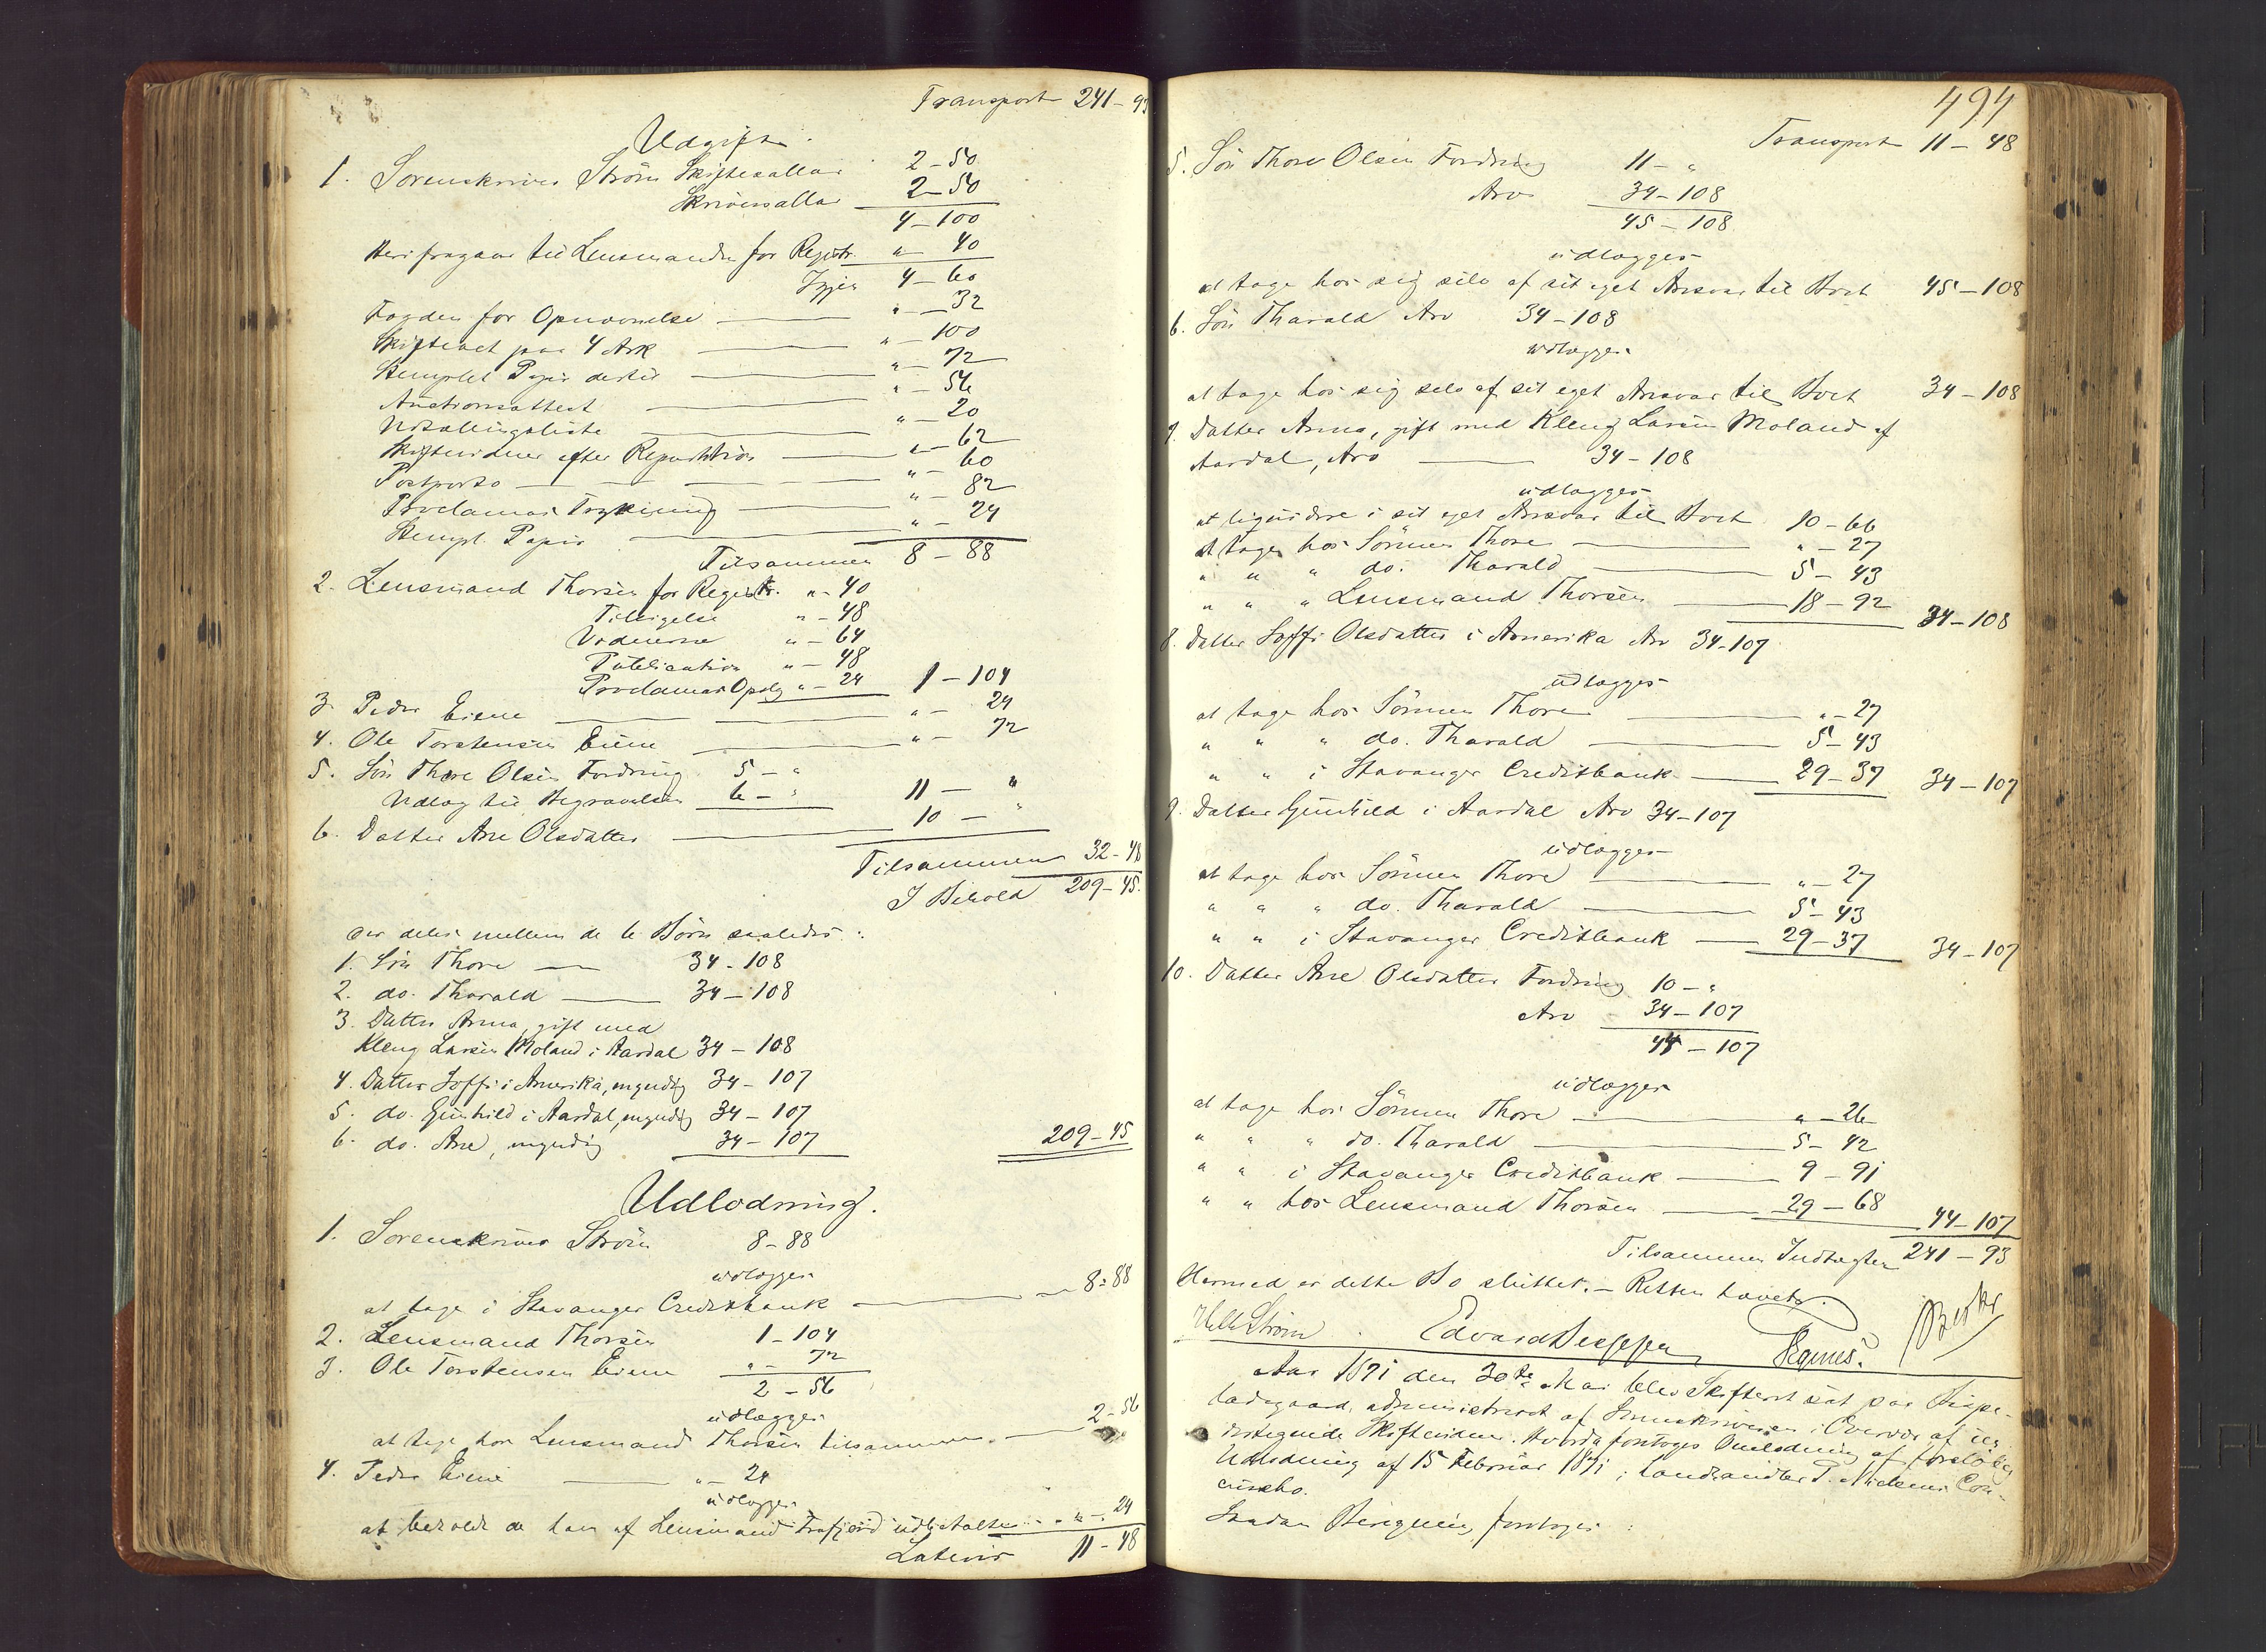 Transport 241 – 93
Udgift.
1. Sorenskriver Ström Skiftesallar 2 – 50
Skriversallar 2 – 50
4 – 100
Herifragaar til Lensmanden for Registr. " 40
Igjen 4 – 60
Fogden for Opnævnelse " – 32
Skiftebrevet paa 4 Ark " – 100
Stemplet Papir dertil " – 72
Auctionsattest " – 56
Udtællingsliste " – 20
Skiftevidner efter Repartition " – 62
Postporto " – 60
Proclamas Trykning " – 82
Stempl. Papir " – 24
Tilsammen 8 – 88
2. Lensmand Thorsen for Registr. " – 40
Tilsigelse " – 48
Vidnerne " – 64
Publication " – 48
Proclamas Opslg " – 24 1 – 104
3. Peder Eiene " – 24
4. Ole Torstensen Eiene " – 72
5. Sön Thore Olsen Fordring 5 – "
Udlæg til Begravelsen 6 – " 11 – "
6. Datter Ane Olsdatter 10 – "
Tilsammen 32 – 48
I Behold 209 – 45
der deles mellem de 6 Börn saaledes:
1. Sön Thore 34 – 108
2. do. Tharald 34 – 108
3. Datter Anna, gift med
Kleng Larsen Moland i Aardal 34 – 108
4. Datter Soffi i Amerika, myndig 34 – 107
5. do. Gunhild i Aardal, myndig 34 – 107
6. do. Ane, myndig 34 – 107 209 – 45
Udlodning.
1. Sorenskriver Ström 8 – 88
udlægges
at tage i Stavanger Creditbank 8 – 88
2. Lensmand Thorsen 1 – 104
3. Ole Torstensen Eiene " – 72
2 – 56
udlægges
at tage hos Lensmand Thorsen tilsammen 2 – 56
4. Peder Eiene " – 24
udlægges
at beholde de ham af Lensmand Frafjord udbetalte " – 24
Lateris 11 – 48
494
Transport 11 – 48
5. Sön Thore Olsen Fordring 11 – "
Arv 34 – 108
45 – 108
udlægges
at tage hos sig selv af sit eget Ansvar til Boet 45 – 108
6. Sön Tharald Arv 34 – 108
udlægges
at tage hos sig selv af sit eget Ansvar til Boet 34 – 108
7. Datter Anna, gift med Kleng Larsen Moland af
Aardal, Arv 34 – 108
udlægges
at liquidere i sit eget Ansvar til Boet 10 – 66
at tage hos Sönnen Thore " – 27
" " " do. Tharald 5 – 43
" " " Lensmand Thorsen 18 – 92 34 – 108
8. Datter Soffi Olsdatter i Amerika Arv 34 – 107
udlægges
at tage hos Sönnen Thore " – 27
" " " do. Tharald 5 – 43
" " i Stavanger Creditbank 29 – 37 34 – 107
9. Datter Gunhild i Aardal Arv 34 – 107
udlægges
at tage hos Sönnen Thore " – 27
" " " do. Tharald 5 – 43
" " i Stavanger Creditbank 29 – 37 34 – 107
10. Datter Ane Olsdatter Fordring 10 – "
Arv 34 – 107
44 – 107
udlægges
at tage hos Sönnen Thore " – 26
" " " do. Tharald 5 – 42
" " i Stavanger Creditbank 9 – 91
" " hos Lensmand Thorsen 29 – 68 44 – 107
Tilsammen Indtægten 241 – 93
Hermed er dette Bo sluttet. – Retten hævet.
Ström. Edvard
Aar 1871 den 30te Mai blev Skifteret sat paa
ladegaard, administreret af Sorenskriveren i Overvær af
undertegnede Skiftevidner. Hvorda foretoges Omlodning af foreløbig
Udlodning af 15 Februar 1871 i Landhandler P. Con-
cursbo.
Saadan Beregning foretoges: